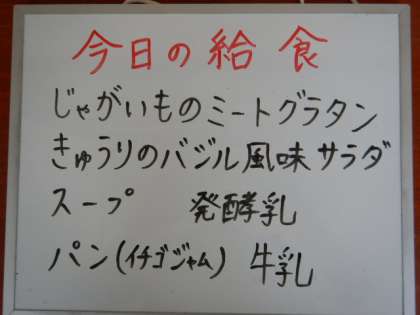 今日の給食
じゃがいものミートグラタン
きゅうりのバジル風味サラダ
スープ 発酵乳
パン(イチゴジャム) 牛乳